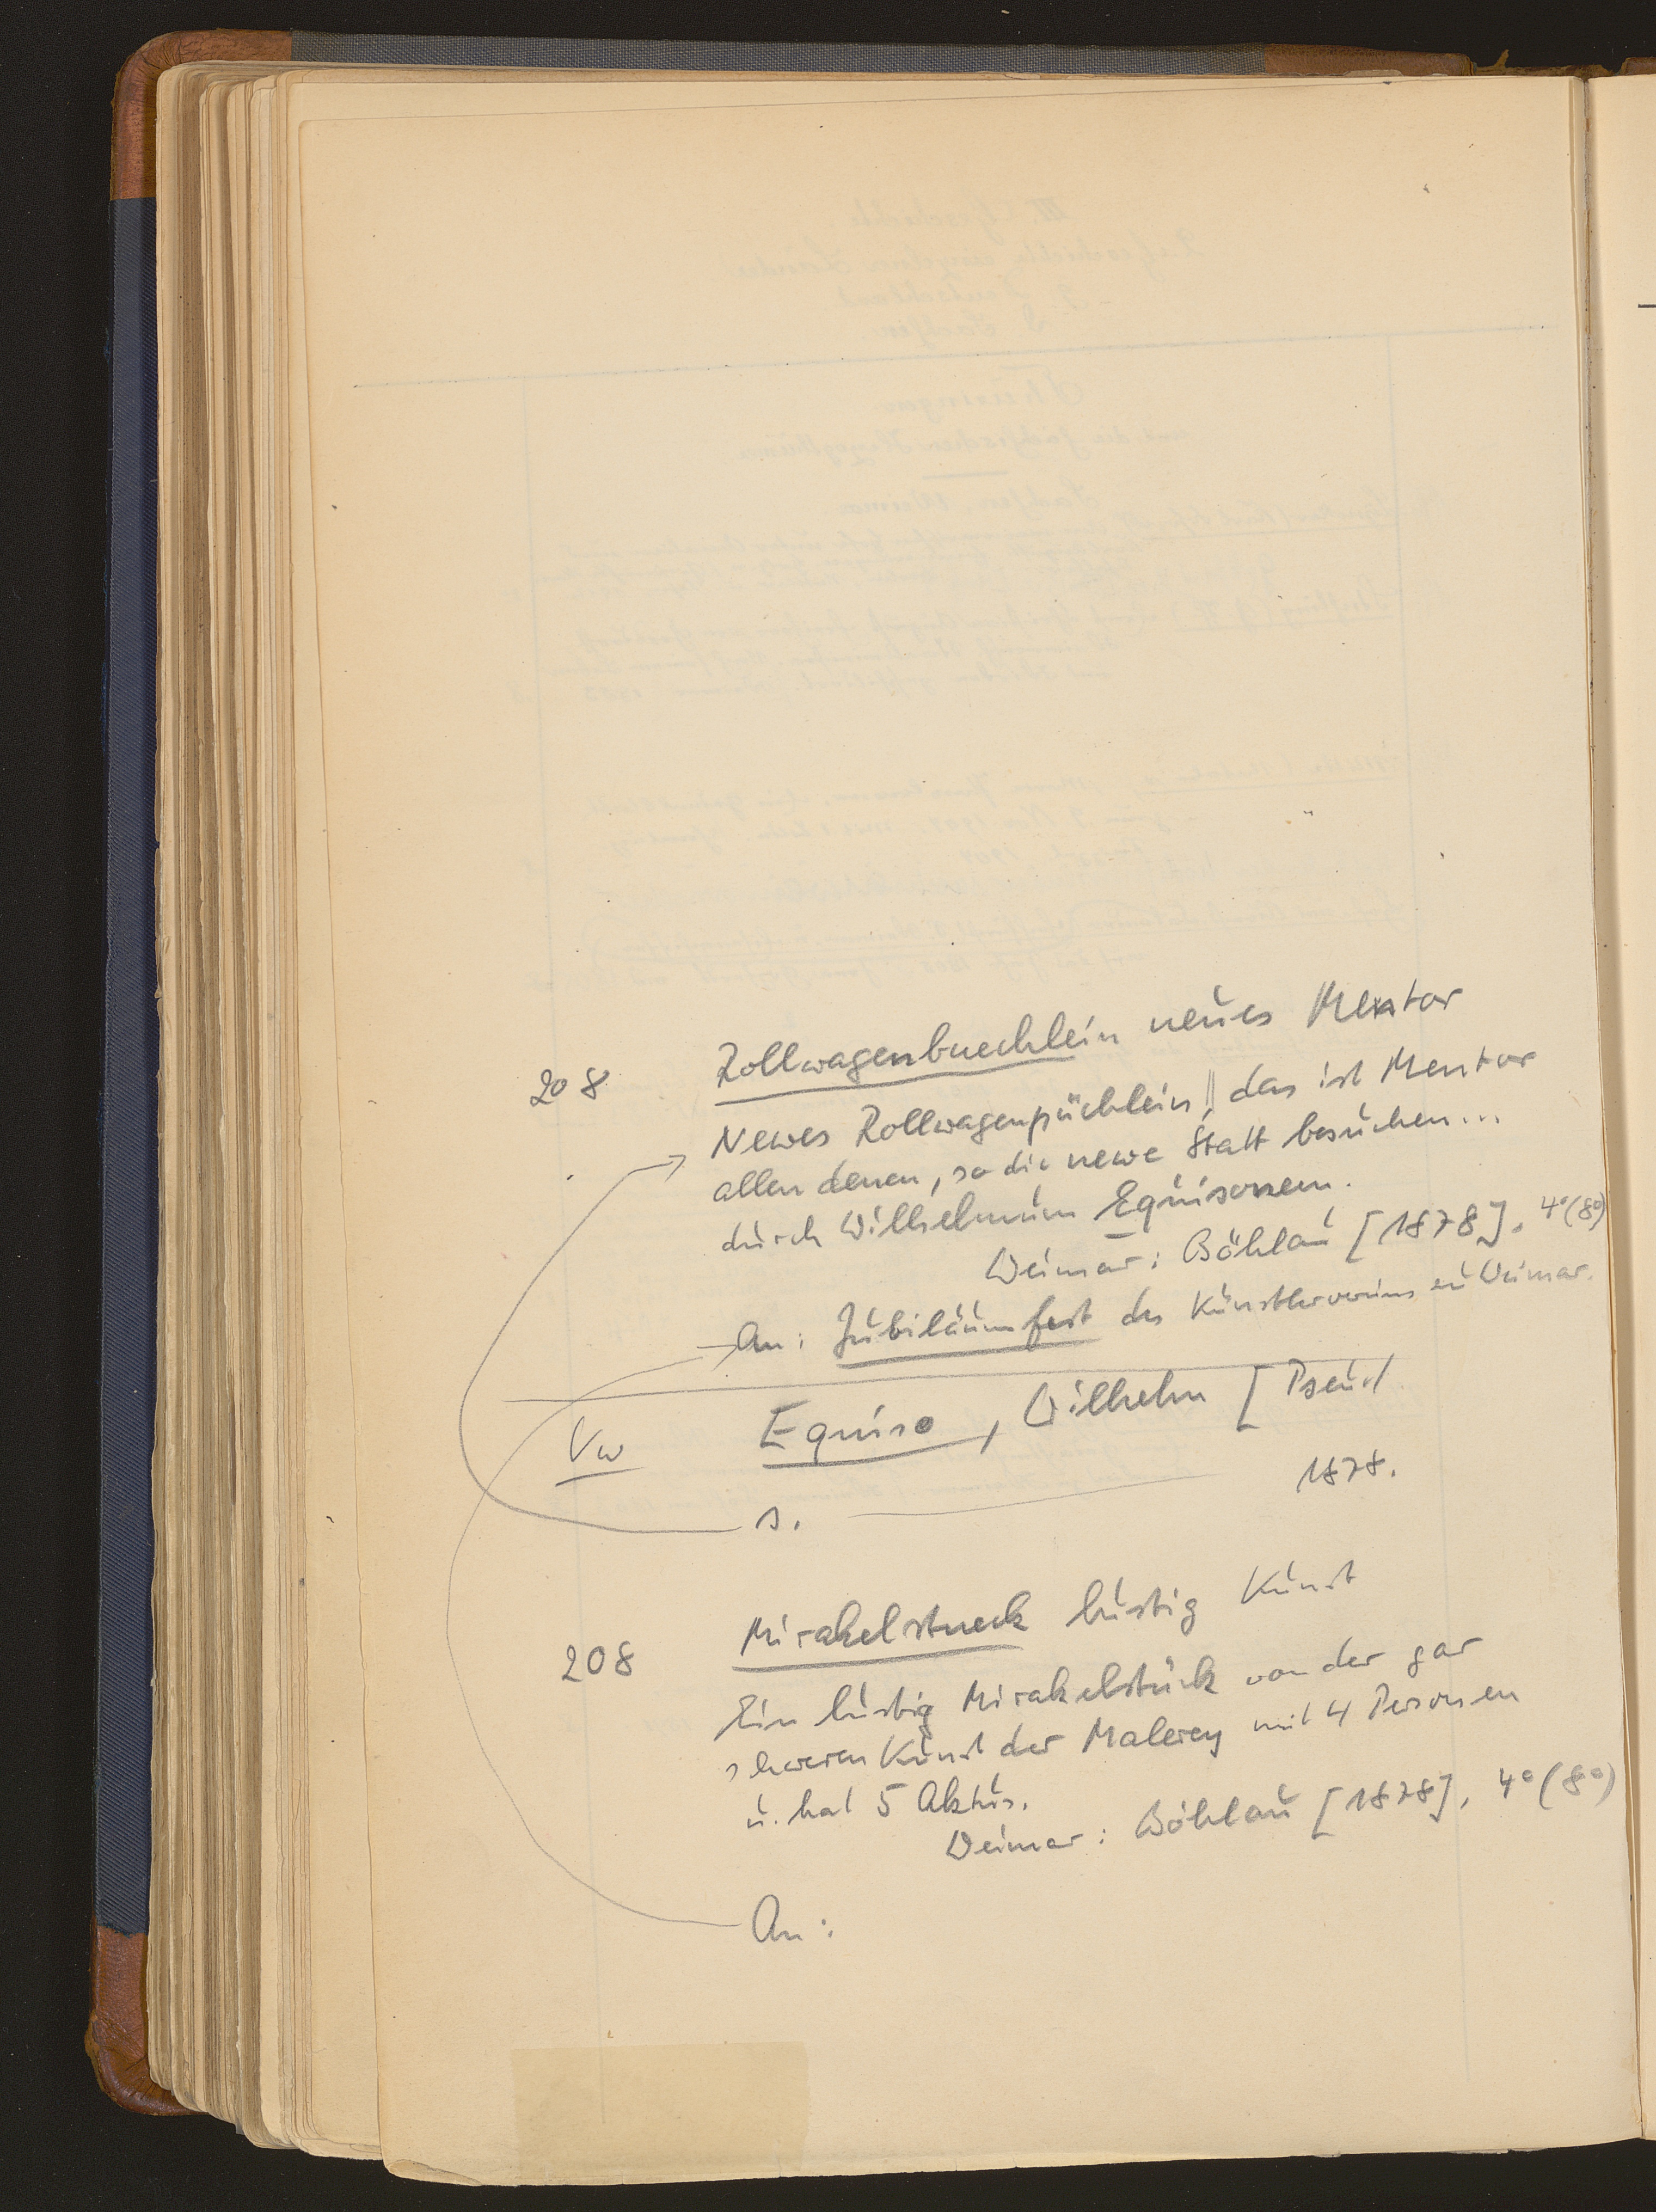 208 Rollwagenbuechlein neues Mentor
Newes Rollwagenpüchlein, das ist Mentor
allen denen, so die newe Statt besuchen...
durch Wilhelmum Equisonem.
Weimar: Böhlau [1878]. 4°(8°)
An: Jubiläumfest des Künstlervereins zu Weimar.
Vw Equiso, Wilhelm [Pseud
s. 1878.
208 Mirakelstueck lustig Kunst
Ein lustig Mirakelstück von der gar
schweren Kunst der Malerey mit 4 Personen
u. hat 5 Aktus.
Weimar: Böhlau [1878]. 4°(8°)
An: